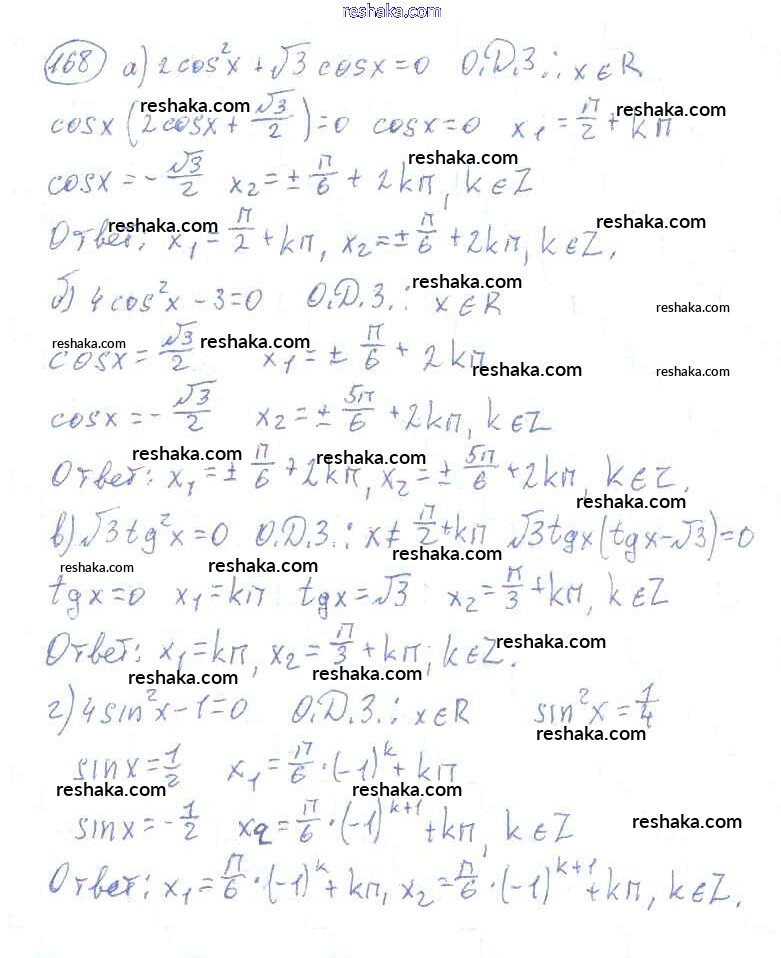 reshaka.com
168 а) 2cos²x + √3 cosx = 0 О.Д.З.: x ∈ R
reshaka.com
cosx (2cosx + √3/2) = 0 cosx = 0 x₁ = π/2 + kπ
reshaka.com
reshaka.com
cosx = -√3/2 x₂ = ± π/6 + 2kπ, k ∈ Z
reshaka.com
reshaka.com
Ответ: x₁ = π/2 + kπ, x₂ = ± π/6 + 2kπ, k ∈ Z.
reshaka.com
б) 4cos²x - 3 = 0 О.Д.З.: x ∈ R
reshaka.com
reshaka.com
reshaka.com
cosx = √3/2 x₁ = ± π/6 + 2kπ
reshaka.com
reshaka.com
cosx = -√3/2 x₂ = ± 5π/6 + 2kπ, k ∈ Z
reshaka.com
reshaka.com
Ответ: x₁ = ± π/6 + 2kπ, x₂ = ± 5π/6 + 2kπ, k ∈ Z.
reshaka.com
reshaka.com
в) √3tg²x = 0 О.Д.З.: x ≠ π/2 + kπ √3tgx(tgx - √3) = 0
reshaka.com
reshaka.com
reshaka.com
tgx = 0 x₁ = kπ tgx = √3 x₂ = π/3 + kπ, k ∈ Z
Ответ: x₁ = kπ, x₂ = π/3 + kπ, k ∈ Z.
reshaka.com
reshaka.com
reshaka.com
г) 4sin²x - 1 = 0 О.Д.З.: x ∈ R sin²x = 1/4
reshaka.com
sinx = 1/2 x₁ = π/6 · (-1)^k + kπ
reshaka.com
reshaka.com
sinx = -1/2 x₂ = π/6 · (-1)^(k+1) + kπ, k ∈ Z
reshaka.com
Ответ: x₁ = π/6 · (-1)^k + kπ, x₂ = π/6 · (-1)^(k+1) + kπ, k ∈ Z.